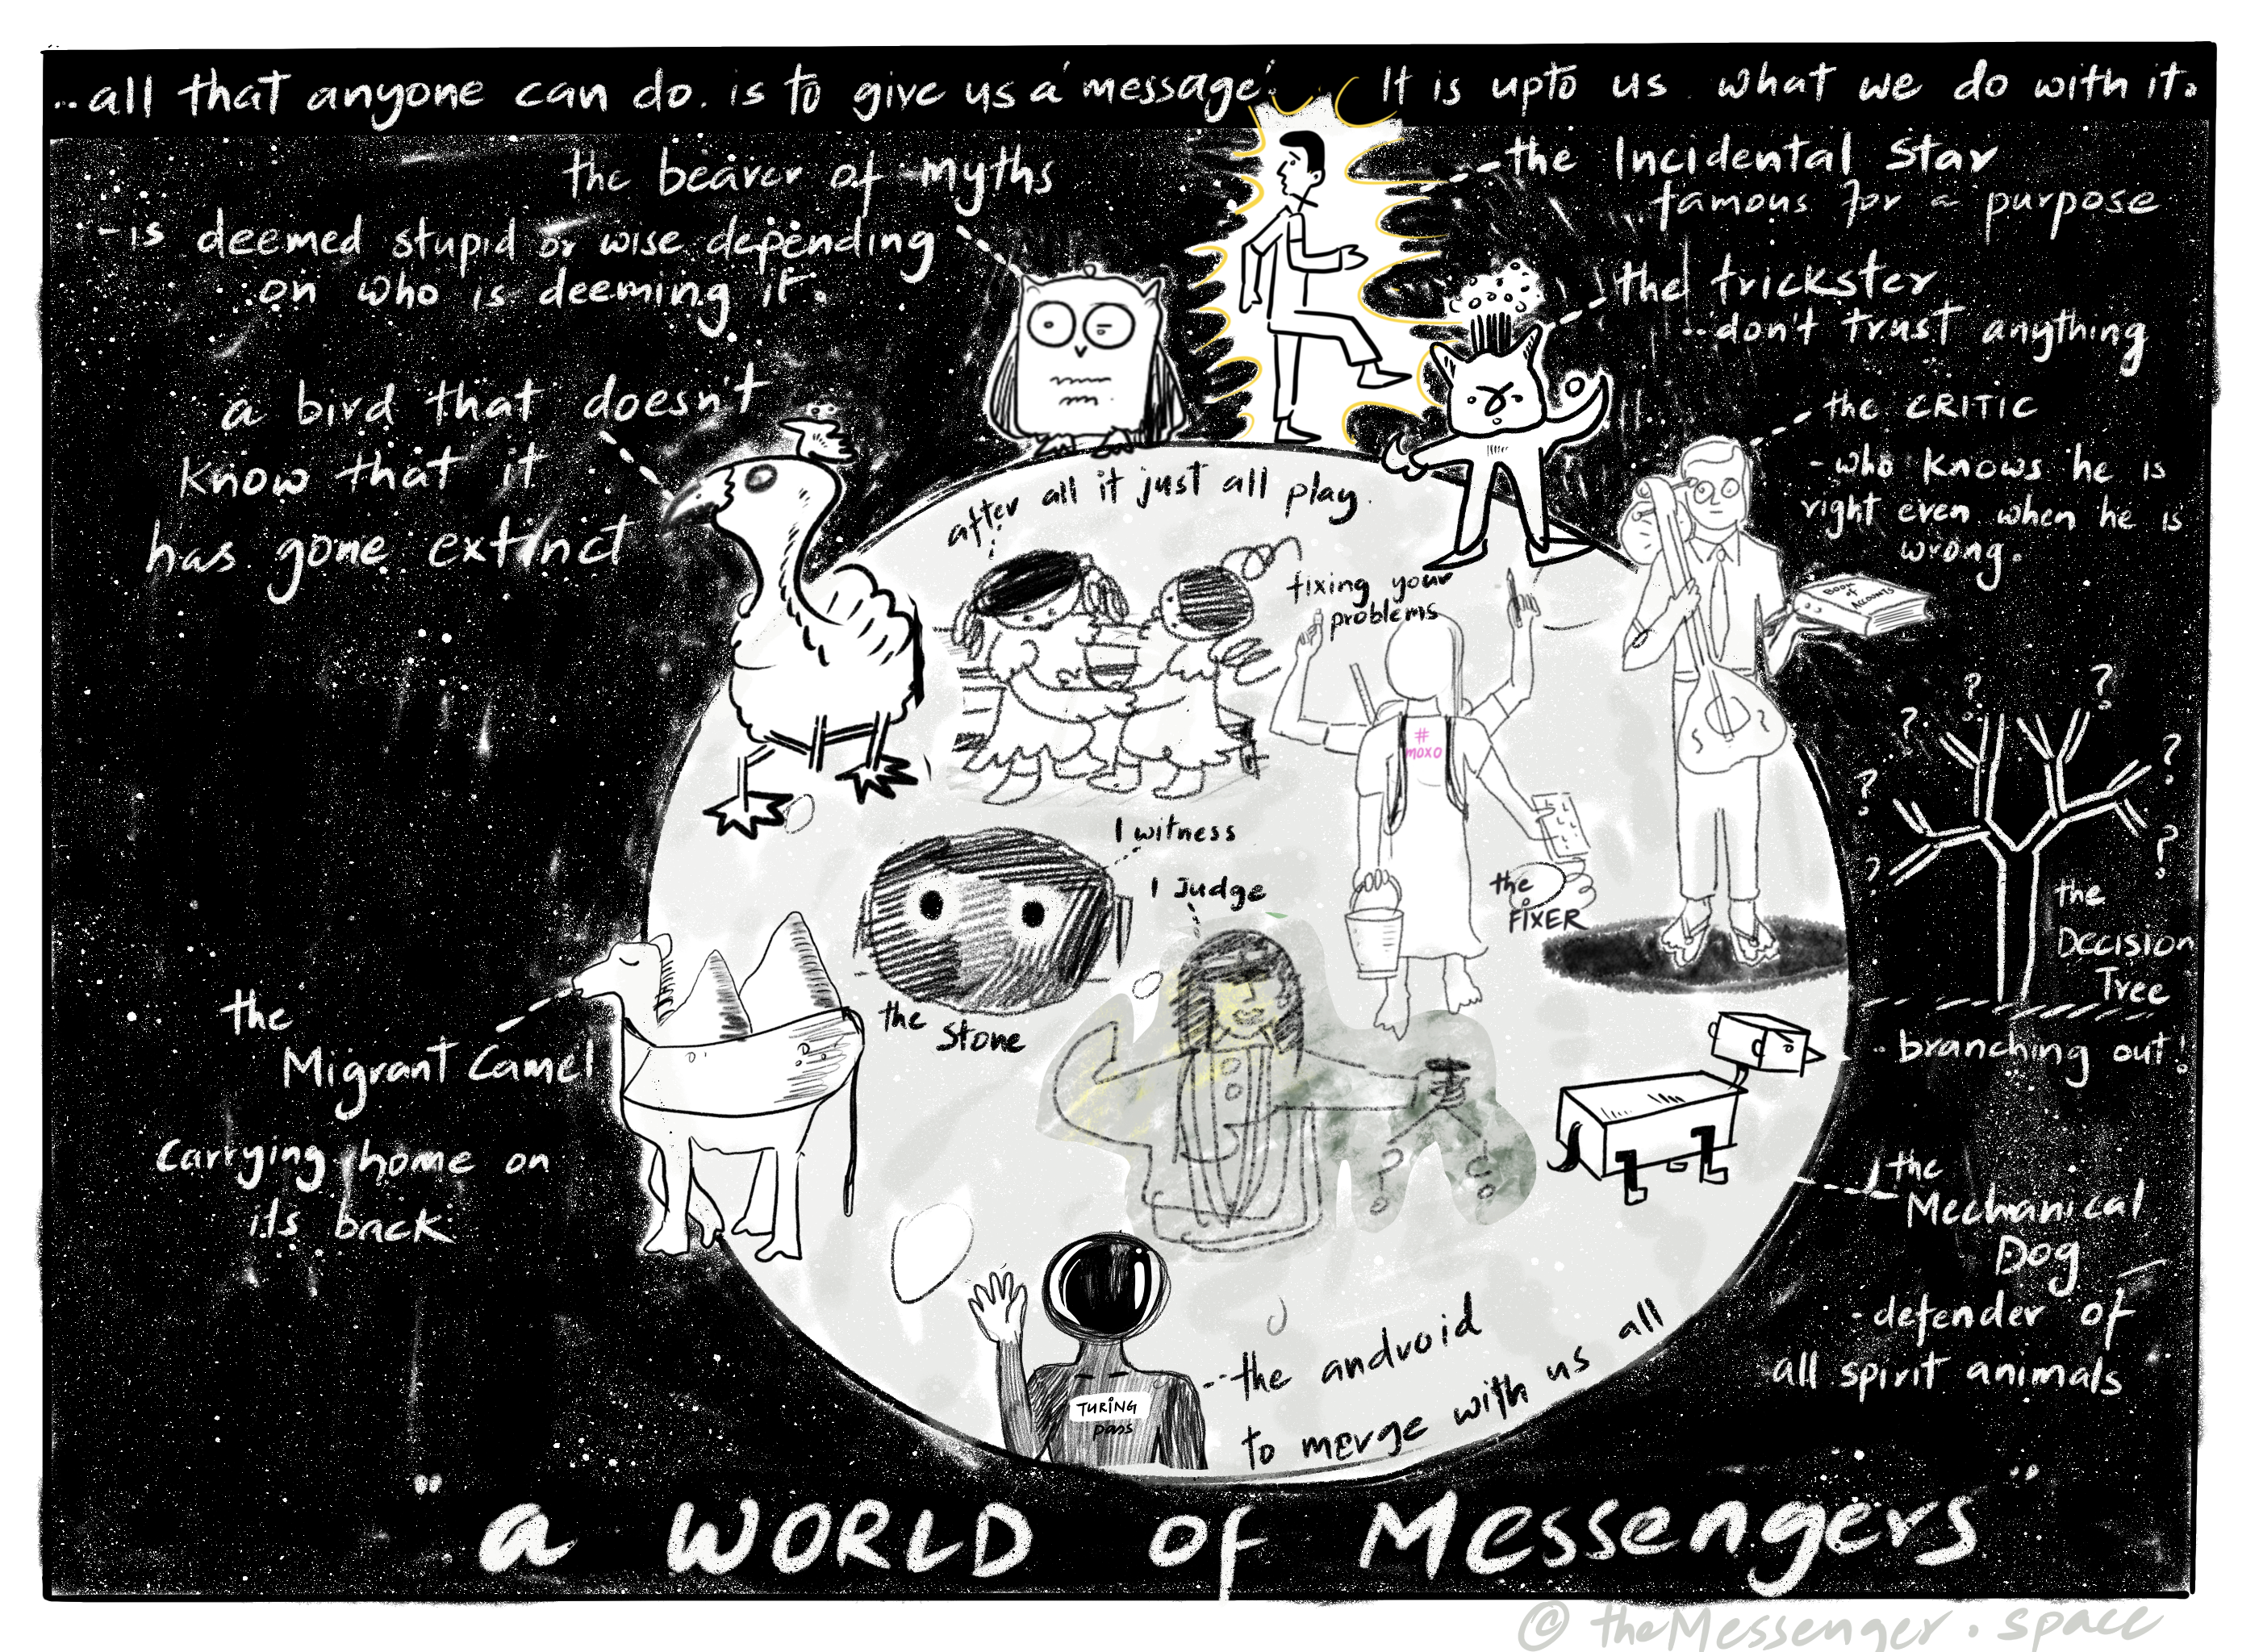 ..all that anyone can do. is to give us a 'message'. It is upto us what we do with it.
the bearer of myths
-is deemed stupid or wise depending
on who is deeming it.
the Incidental Star
famous for a purpose
the trickster
..don't trust anything
a bird that doesn't
know that it
has gone extinct
the CRITIC
-who knows he is
right even when he is
wrong.
after all it just all play.
fixing your
problems
BOOK
of
ACCOUNTS
#
moxo
I witness
I Judge
the
FIXER
the
Decision
Tree
..branching out!
the
Stone
the
Migrant Camel
Carrying home on
its back
the
Mechanical
Dog
-defender of
all spirit animals
TURING
pass
the android
to merge with us all
"a WORLD of Messengers"
@theMessenger.space